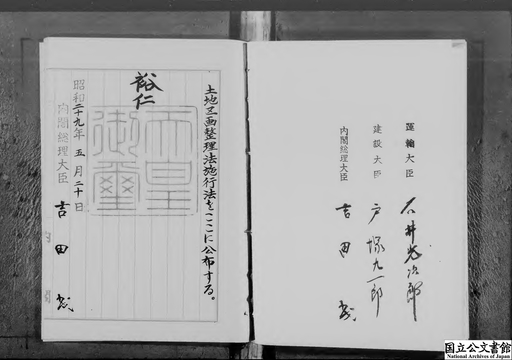 土地区画整理法施行法をここに公布する。
裕仁
天皇御璽
昭和二十九年五月二十日
内閣総理大臣 吉田茂
運輸大臣 石井光次郎
建設大臣 戸塚九一郎
内閣総理大臣 吉田茂
国立公文書館
National Archives of Japan